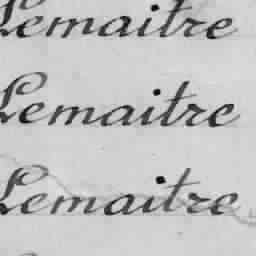 Lemaitre
Lemaitre
Lemaitre